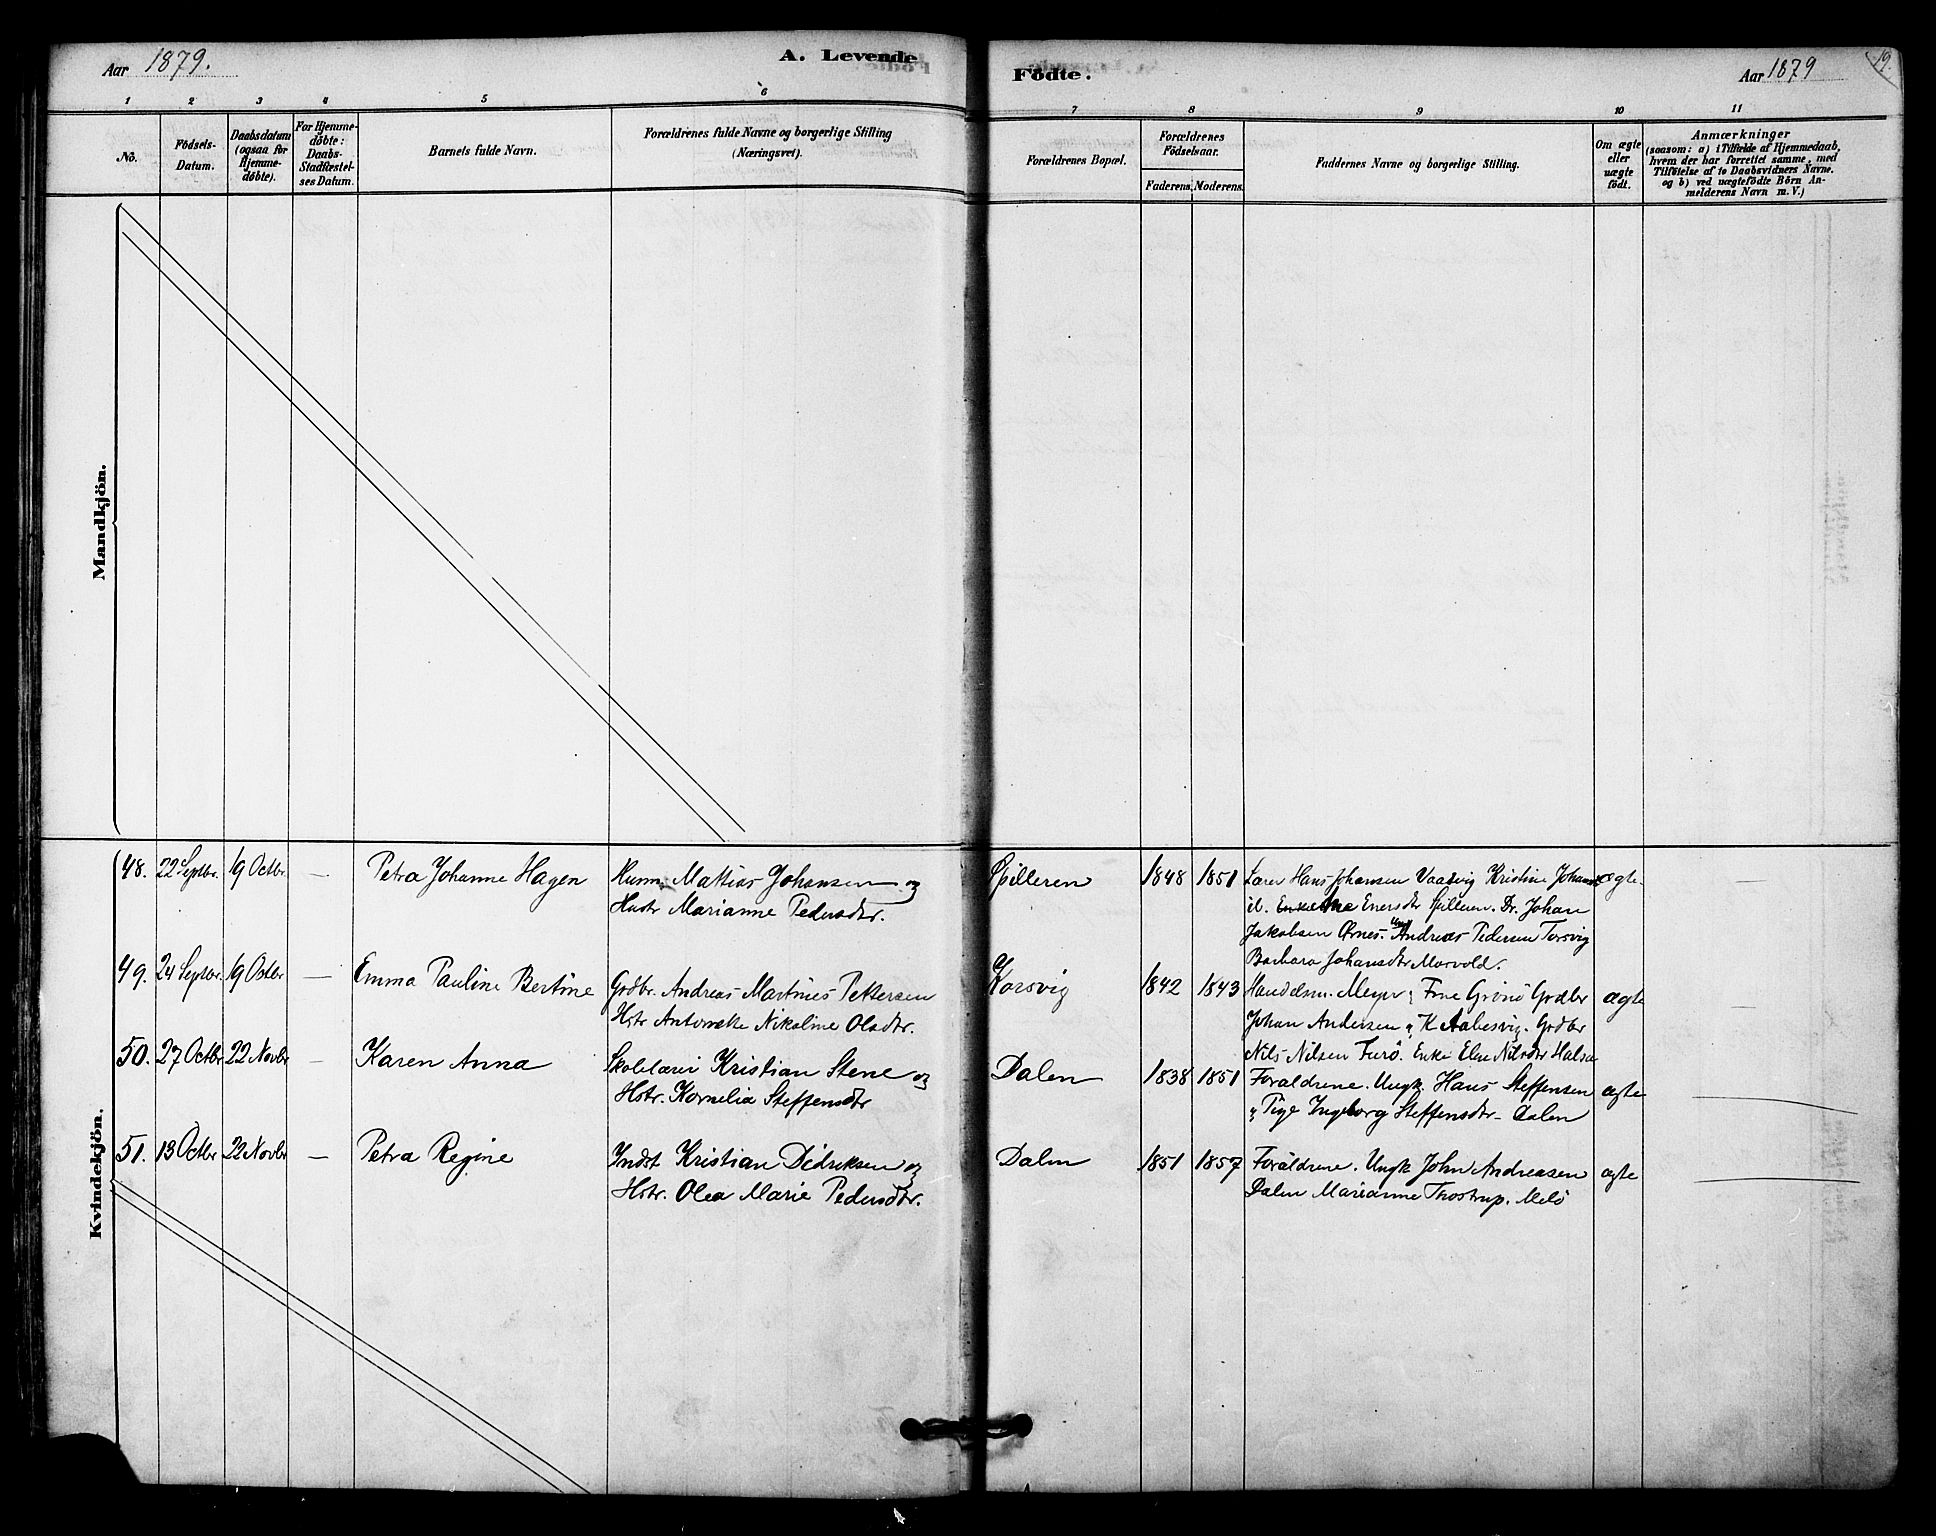 Aar 1879.
A. Levende
Födte.
Aar 1879
19.
1 2 3 4 5 6 7 8 9 10 11
No.
Födsels-
Datum.
Daabsdatum
(ogsaa for
Hjemme-
döbte).
For Hjemme-
döbte:
Daabs-
Stadfæstel-
ses Datum.
Barnets fulde Navn.
Forældrenes fulde Navne og borgerlige Stilling
(Næringsvei).
Forældrenes Bopæl.
Forældrenes
Födselsaar.
Faderens. Moderens.
Faddernes Navne og borgerlige Stilling.
Om ægte
eller
uægte
födt.
Anmærkninger
(saasom: a) i Tilfælde af Hjemmedaab,
hvem der har forrettet samme, med
Tilföielse af to Daabsvidners Navne.
og b) ved uægtefödte Börn An-
melderens Navn m. V.)
Mandkjön.
Kvindekjön.
48. 22 Septbr. 19 Octbr. — Petra Johanne Hagen
Husm. Mattias Johansen og
Hustr Marianne Pedersdtr.
Spilleren 1848 1851
Lærer Hans Johansen Vaatvig Kristine Johans
ib. Enersdtr Spilleren. Dr. Johan
Jakobsen Ørnes. Ungk Andreas Pedersen Torsvig
Barbara Johansdtr Marvold.
ægte.
49. 24 Septbr. 19 Octbr — Emma Pauline Bertine
Grdbr. Andreas Martinus Pettersen
Hstr Antonette Nikoline Olsdtr.
Korsvig 1842 1843
Handelsm. Meyer " Frue Grönö Grdbr
Johan Andersen " K Aabesvig. Grdbr
Nils Nilsen Furö. Enke Else Nilsdtr Halsa
ægte —
50. 27 Octbr 22 Novbr — Karen Anna
Skolelærer Kristian Stene og
Hstr. Kornelia Steffensdtr
Dalen 1838 1851
Forældrene. Ungk. Hans Steffensen
" Pige Ingeborg Steffensdtr- Dalen
ægte —
51. 13 Octbr 22 Novbr — Petra Regine
Indst Kristian Didriksen og
Hstr. Olea Marie Pedersdtr.
Dalen 1851 1857
Forældrene. Ungk John Andreasen
Dalen Marianne Throstrup. Melö
ægte —